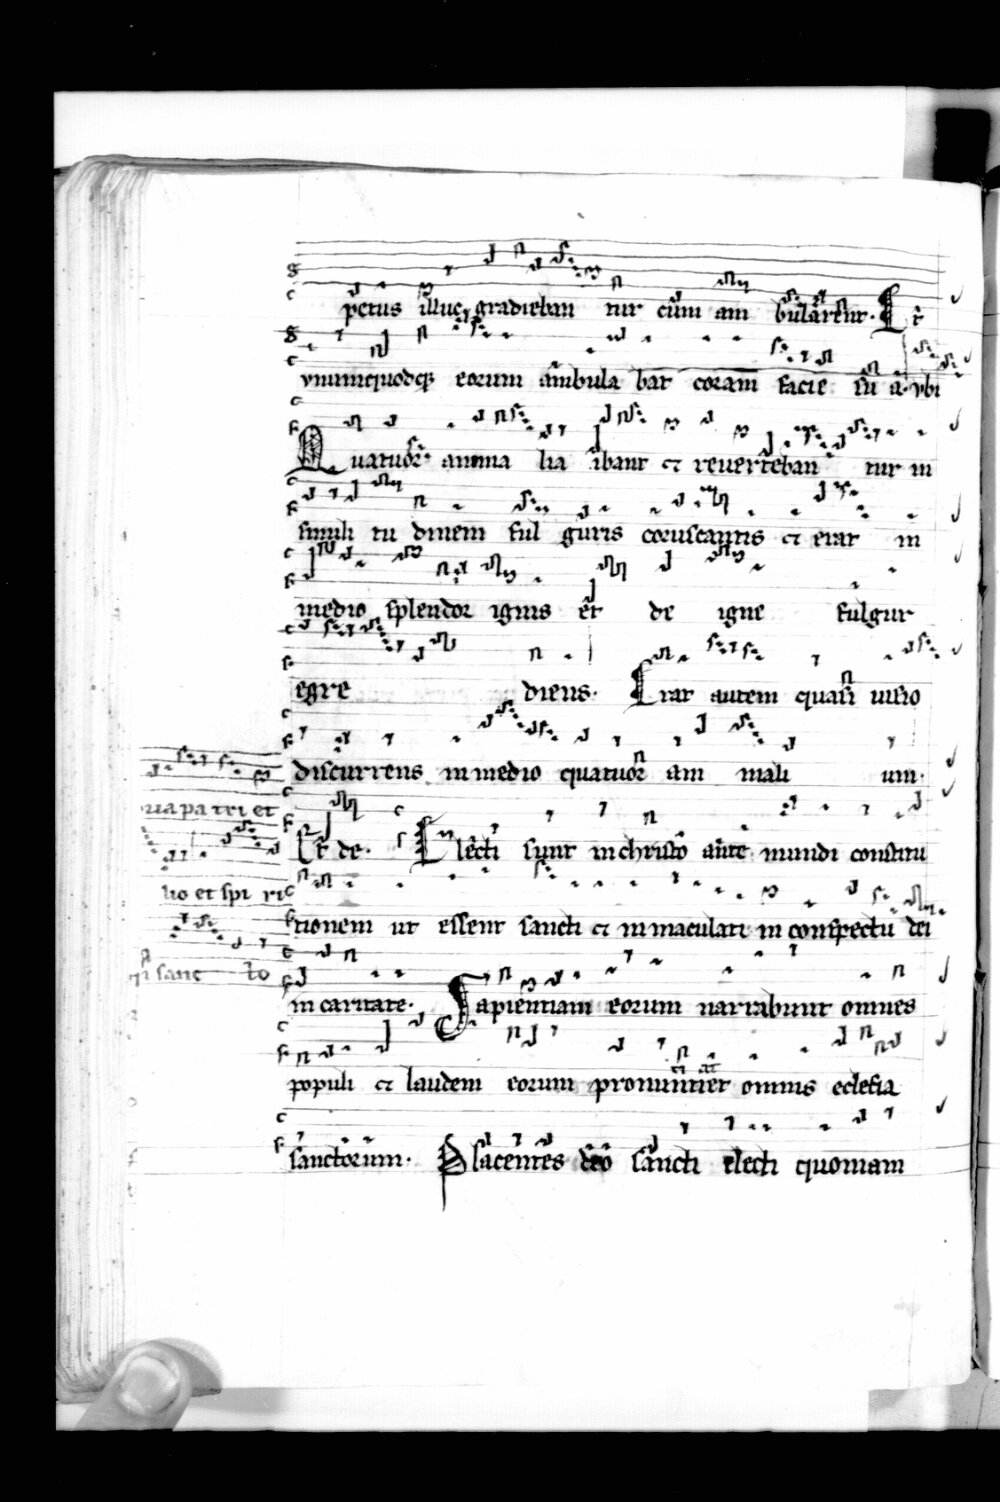 pctus illuc gradieban tur cum am bularent. Et
vnumquodq; eorum ambula bat coram facie su a. vbi
Quatuor anima lia ibant et reverteban tur in
simili tu dinem ful guris coruscantis et erat in
medio splendor ignis et de igne fulgur
egre diens. Erat autem quasi uisio
discurrens in medio quatuor am mali um.
Et de. Electi sunt in christo ante mundi constitu
tionem ut essent sancti et in maculati in conspectu dei
in caritate. Sapientiam eorum narrabunt omnes
populi et laudem eorum pronuntiet omnis eclesia
sanctorum. Placentes deo sancti electi quoniam
ua pa tri et
lio et spi ri
sanc to